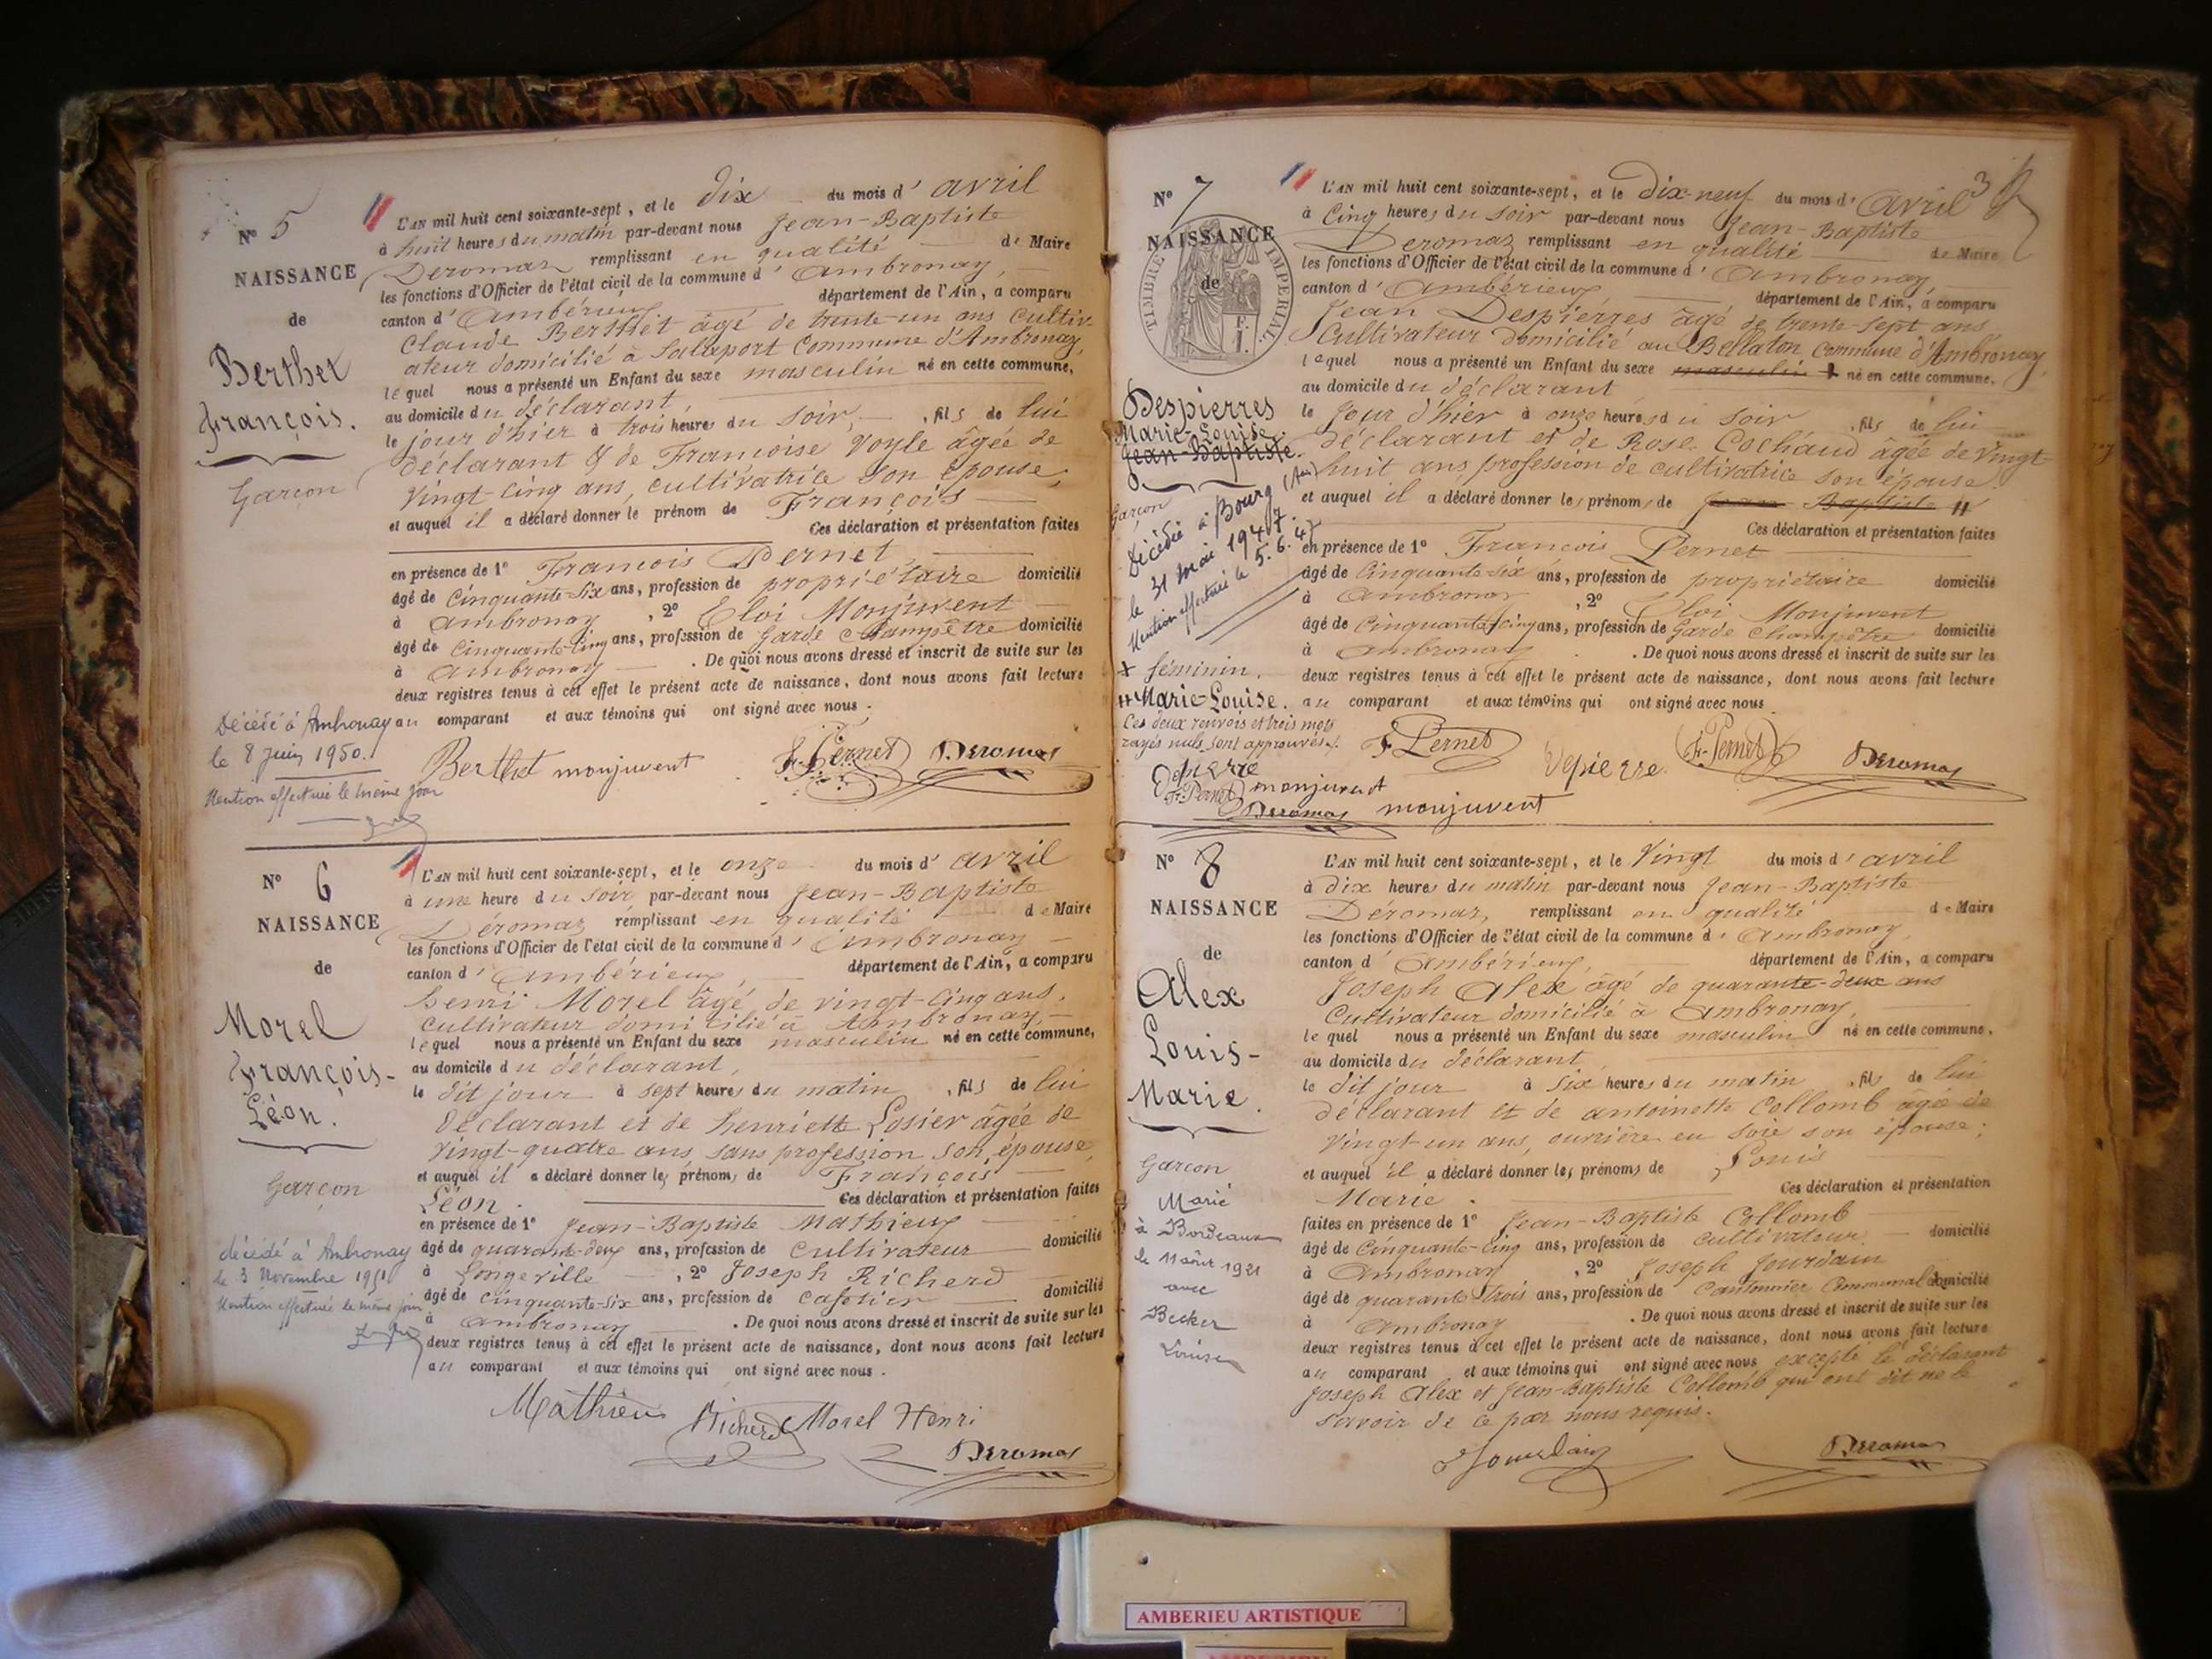 N° 5
NAISSANCE
de
Berthet
François.
Garçon
L'AN mil huit cent soixante-sept, et le dix du mois d' avril
à huit heures du matin par-devant nous Jean-Baptiste
Deromas remplissant en qualité de Maire
les fonctions d'Officier de l'état civil de la commune d' Ambronay,
canton d' Ambérieux département de l'Ain, a comparu
Claude Berthet âgé de trente-un ans cultiv-
ateur domicilié à Salaport Commune d'Ambronay,
lequel nous a présenté un Enfant du sexe masculin né en cette commune,
au domicile du déclarant,
le jour d'hier à trois heures du soir, , fils de lui
déclarant & de Françoise Voyle âgée de
vingt-cinq ans, cultivatrice son épouse,
et auquel il a déclaré donner le prénom de François
Ces déclaration et présentation faites
en présence de 1° François Pernet
âgé de cinquante-six ans, profession de propriétaire domicilié
à Ambronay , 2° Eloi Monjuvent
âgé de cinquante-cinq ans, profession de garde Champêtre domicilié
à Ambronay . De quoi nous avons dressé et inscrit de suite sur les
deux registres tenus à cet effet le présent acte de naissance, dont nous avons fait lecture
au comparant et aux témoins qui ont signé avec nous.
Décédé à Ambronay
le 8 Juin 1950.
Mention effectuée le même jour
Berthet monjuvent F. Pernet Deromas
N° 6
NAISSANCE
de
Morel
François-
Léon.
Garçon
L'AN mil huit cent soixante-sept, et le onze du mois d' avril
à une heure du soir par-devant nous Jean-Baptiste
Déromas remplissant en qualité de Maire
les fonctions d'Officier de l'état civil de la commune d' Ambronay
canton d' Ambérieux département de l'Ain, a comparu
henri Morel âgé de vingt-cinq ans,
cultivateur domicilié à Ambronay,
lequel nous a présenté un Enfant du sexe masculin né en cette commune,
au domicile du déclarant,
le dit jour à sept heures du matin , fils de lui
déclarant et de henriette Losier âgée de
vingt-quatre ans, sans profession son épouse,
et auquel il a déclaré donner les prénoms de François
Léon. Ces déclaration et présentation faites
en présence de 1° Jean-Baptiste Mathieux
âgé de quarante-deux ans, profession de cultivateur domicilié
à Longeville , 2° Joseph Richerd
âgé de cinquante-six ans, profession de cafetier domicilié
à Ambronay . De quoi nous avons dressé et inscrit de suite sur les
deux registres tenus à cet effet le présent acte de naissance, dont nous avons fait lecture
au comparant et aux témoins qui ont signé avec nous.
décédé à Ambronay
le 3 Novembre 1951
Mention effectuée le même jour
Mathieu Richerd Morel Henri
Deromas
N° 7
NAISSANCE
de
TIMBRE IMPERIAL
Despierres
Marie-Louise.
Jean-Baptiste.
Garçon
Décédée à Bourg (Ain)
le 31 mai 1947.
Mention effectuée le 5.6.47
+ féminin.
++ Marie-Louise.
Ces deux renvois et trois mots
rayés nuls, sont approuvés.
L'AN mil huit cent soixante-sept, et le dix-neuf du mois d' avril 3
à cinq heures du soir par-devant nous Jean-Baptiste
Deromas remplissant en qualité de Maire
les fonctions d'Officier de l'état civil de la commune d' Ambronay
canton d' Ambérieux département de l'Ain, a comparu
Jean Despierres âgé de trente-sept ans
Cultivateur domicilié au Bellaton Commune d'Ambronay,
lequel nous a présenté un Enfant du sexe masculin + né en cette commune,
au domicile du déclarant
le jour d'hier à onze heures du soir , fils de lui
déclarant et de Rose Cochaud âgée de vingt-
huit ans profession de cultivatrice son épouse.
et auquel il a déclaré donner les prénoms de Jean-Baptiste ++
Ces déclaration et présentation faites
en présence de 1° François Pernet
âgé de cinquante-six ans, profession de propriétaire domicilié
à Ambronay , 2° Eloi Monjuvent
âgé de cinquante-cinq ans, profession de Garde champêtre domicilié
à Ambronay . De quoi nous avons dressé et inscrit de suite sur les
deux registres tenus à cet effet le présent acte de naissance, dont nous avons fait lecture
au comparant et aux témoins qui ont signé avec nous
F. Pernet Depierre Fr. Pernet Deromas
Depierre
Fr. Pernet monjuvent
Deromas monjuvent
N° 8
NAISSANCE
de
Alex
Louis-
Marie.
Garçon
Marié
à Bordeaux
le 11 août 1921
avec
Becker
Louise
L'AN mil huit cent soixante-sept, et le vingt du mois d' avril
à dix heures du matin par-devant nous Jean-Baptiste
Déromas, remplissant en qualité de Maire
les fonctions d'Officier de l'état civil de la commune d' Ambronay,
canton d' Ambérieux, département de l'Ain, a comparu
Joseph Alex âgé de quarante-deux ans
Cultivateur domicilié à Ambronay,
lequel nous a présenté un Enfant du sexe masculin né en cette commune,
au domicile du déclarant,
le dit jour à six heures du matin , fils de lui
déclarant et de antoinette Collomb agée de
vingt-un ans, ouvrière en soie son épouse;
et auquel il a déclaré donner les prénoms de Louis
Marie. Ces déclaration et présentation
faites en présence de 1° Jean-Baptiste Collomb
âgé de cinquante-cinq ans, profession de cultivateur domicilié
à Ambronay , 2° Joseph Jourdain
âgé de quarante-trois ans, profession de Cantonnier Communal domicilié
à Ambronay . De quoi nous avons dressé et inscrit de suite sur les
deux registres tenus à cet effet le présent acte de naissance, dont nous avons fait lecture
au comparant et aux témoins qui ont signé avec nous excepté le déclarant
Joseph Alex et Jean-Baptiste Collomb qui ont dit ne le
savoir de ce par nous requis.
Jourdain Deromas
AMBERIEU ARTISTIQUE
AMBERIEU